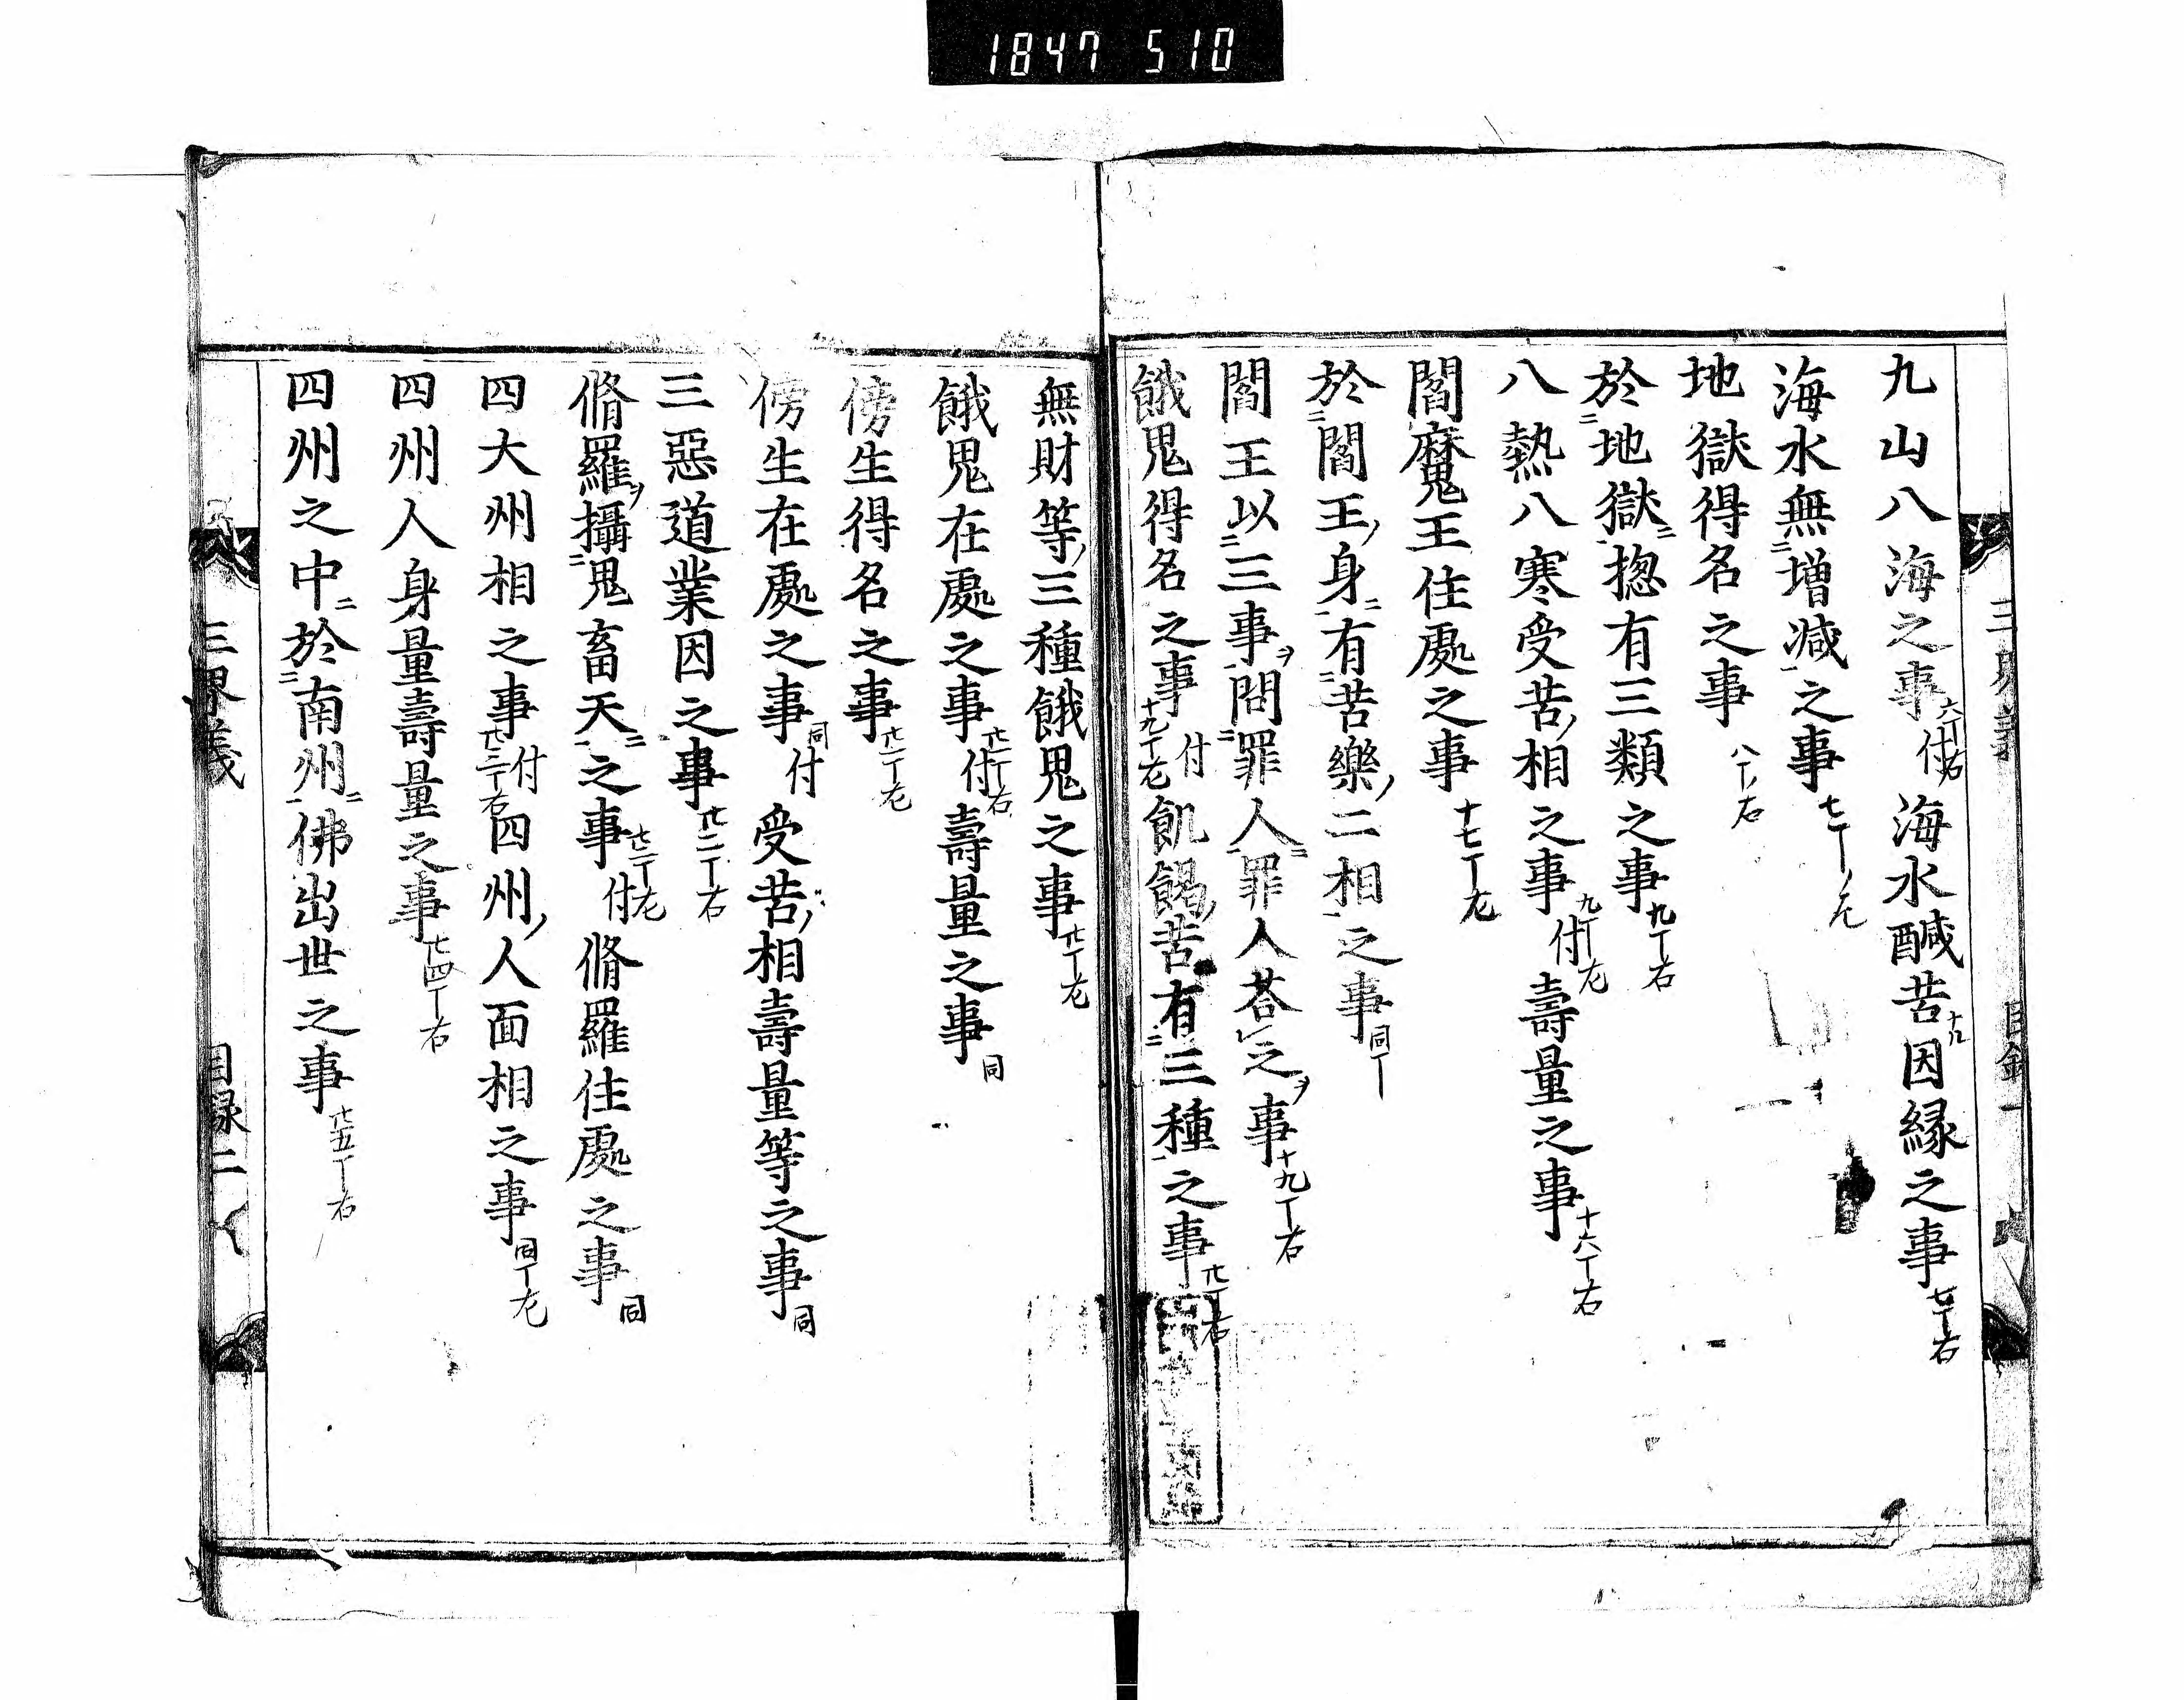 1847 510
九山八海之事六丁右付海水醎苦因縁之事七丁右
海水無増減之事七丁左
地獄得名之事八丁右
於地獄揔有三類之事九丁右
八熱八寒受苦相之事九丁左付壽量之事十六丁右
閻魔王住處之事十七丁左
於閻王身有苦樂二相之事同丁
閻王以三事問罪人罪人荅之事十九丁右
餓鬼得名之事十九丁左付飢餲苦有三種之事廿丁右
無財等三種餓鬼之事廿丁左
餓鬼在處之事廿一丁右付壽量之事同
傍生得名之事廿一丁左
傍生在處之事同付受苦相壽量等之事同
三惡道業因之事廿二丁右
脩羅攝鬼畜天之事廿二丁左付脩羅住處之事同
四大州相之事廿三丁右付四州人面相之事同丁左
四州人身量壽量之事廿四丁右
四州之中於南州佛出世之事廿五丁右
三界義 目録二